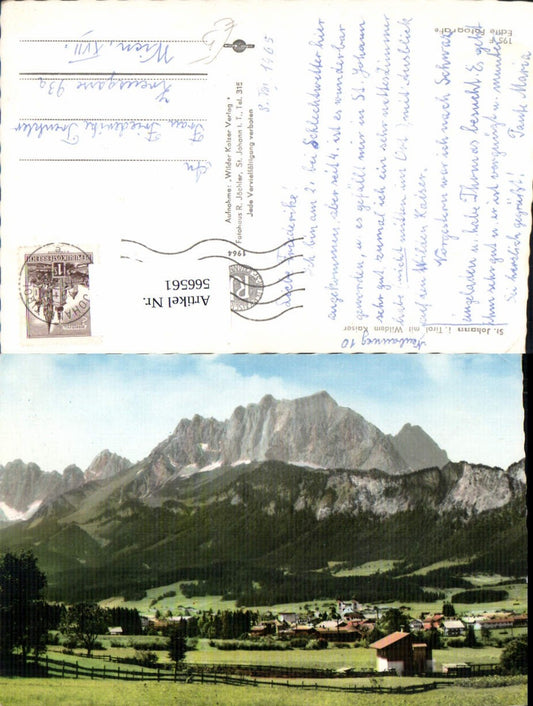 8. IV. 1965
Liebe Friederike!
Ich bin am 2. bei Schlechtwetter hier
angekommen, aber seit 4. ist es wunderbar
geworden, u. es gefällt mir in St. Johann
sehr gut, zumal ich ein sehr nettes Zimmer
habe mitten im Ort, mit Ausblick
auf den Wilden Kaiser.
war ich nach Schwaz
eingeladen, habe Thomas besucht. Es geht
ihm sehr gut u. er ist vergnügt u. munter.
Sei herzlich gegrüßt!
Tante Maria
Neubauweg 10
St. Johann i. Tirol mit Wildem Kaiser
195
Echte Fotografie
Aufnahme: „Wilder Kaiser Verlag"
Fotohaus R. Jöchler, St. Johann i. T., Tel. 315
Jede Vervielfältigung verboten
1964
Artikel Nr.
566561
An
Frau Friederike
93a
Wien, XVIII.
REPUBLIK ÖSTERREICH